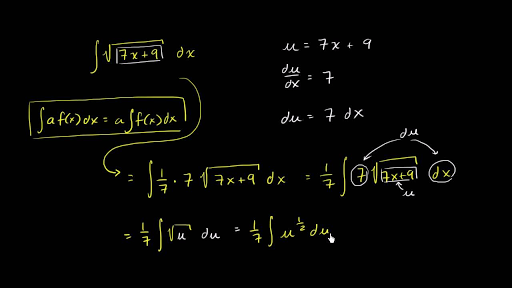 ∫√(7x+9) dx
u = 7x + 9
du/dx = 7
∫a f(x)dx = a∫f(x)dx
du = 7 dx
du
= ∫ 1/7 · 7 √(7x+9) dx = 1/7 ∫ 7 √(7x+9) dx
u
= 1/7 ∫ √u du = 1/7 ∫ u^(1/2) du